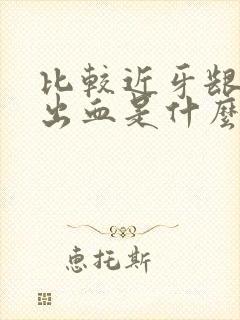 比較近牙龈
出血是什麼
惠托斯